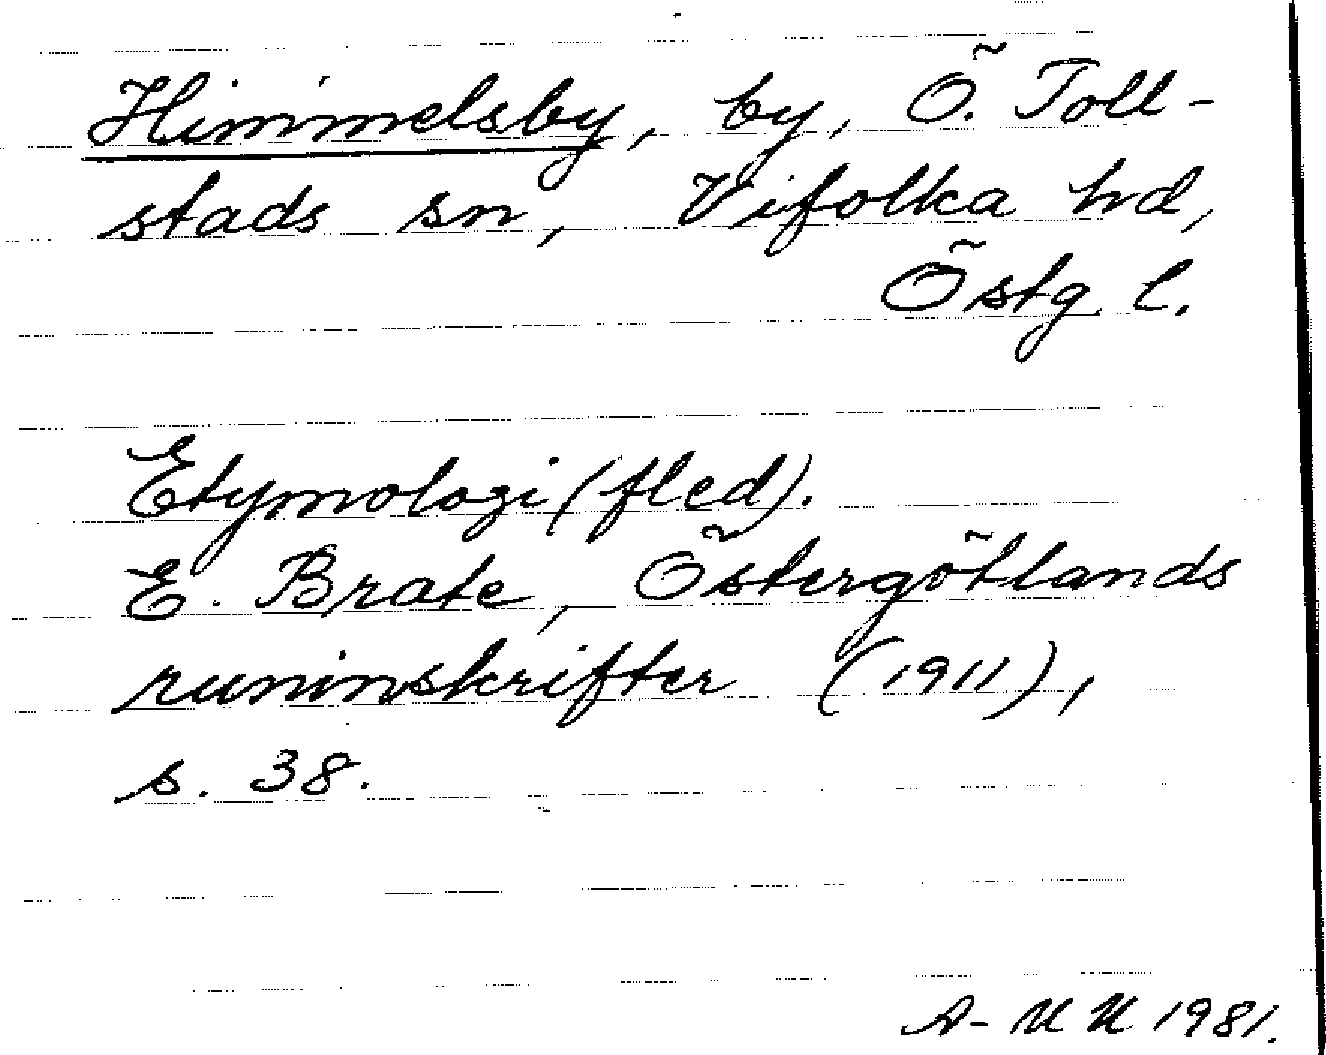 Himmelsby, by, Ö. Toll-
stads sn, Vifolka hd,
Östg. l.
Etymologi (fled).
E. Brate, Östergötlands
runinskrifter (1911),
s. 38.
A-UU 1981.